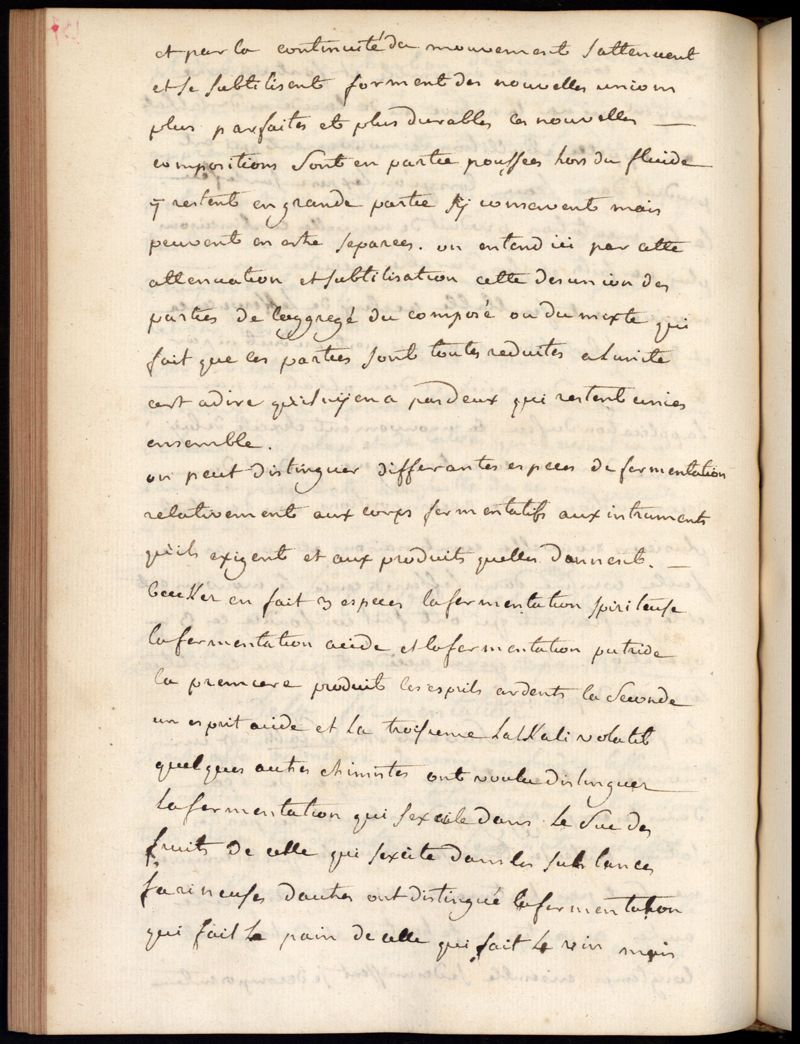 et par la continuité du mouvement sattenuent
et se subtilisent forment des nouvelles unions
plus parfaites et plus durables ces nouvelles —
compositions sont en partie poussées hors du fluide
y restent en grande partie sy conservent mais
peuvent en etre separées. on entend ici par cette
attenuation et subtilisation cette desunion des
parties de laggregé du composé ou du mixte qui
fait que ces parties sont toutes reduites a lunité
cest adire quil ny en a pas deux qui restent unies
ensemble.
on peut distinguer differantes especes de fermentation
relativement aux corps fermentatifs aux intruments
quils exigent et aux produits quelles donnent. —
beccker en fait 3 especes la fermentation spiriteuse
la fermentation acide et la fermentation putride
la premiere produit les esprits ardents la seconde
un esprit acide et la troisieme lalkali volatil
quelques autres chimistes ont voulu distinguer
la fermentation qui sexcite dans le suc des
fruits de celle qui sexcite dans les substances
farineuses dautres ont distingué la fermentation
qui fait le pain de celle qui fait le vin mais